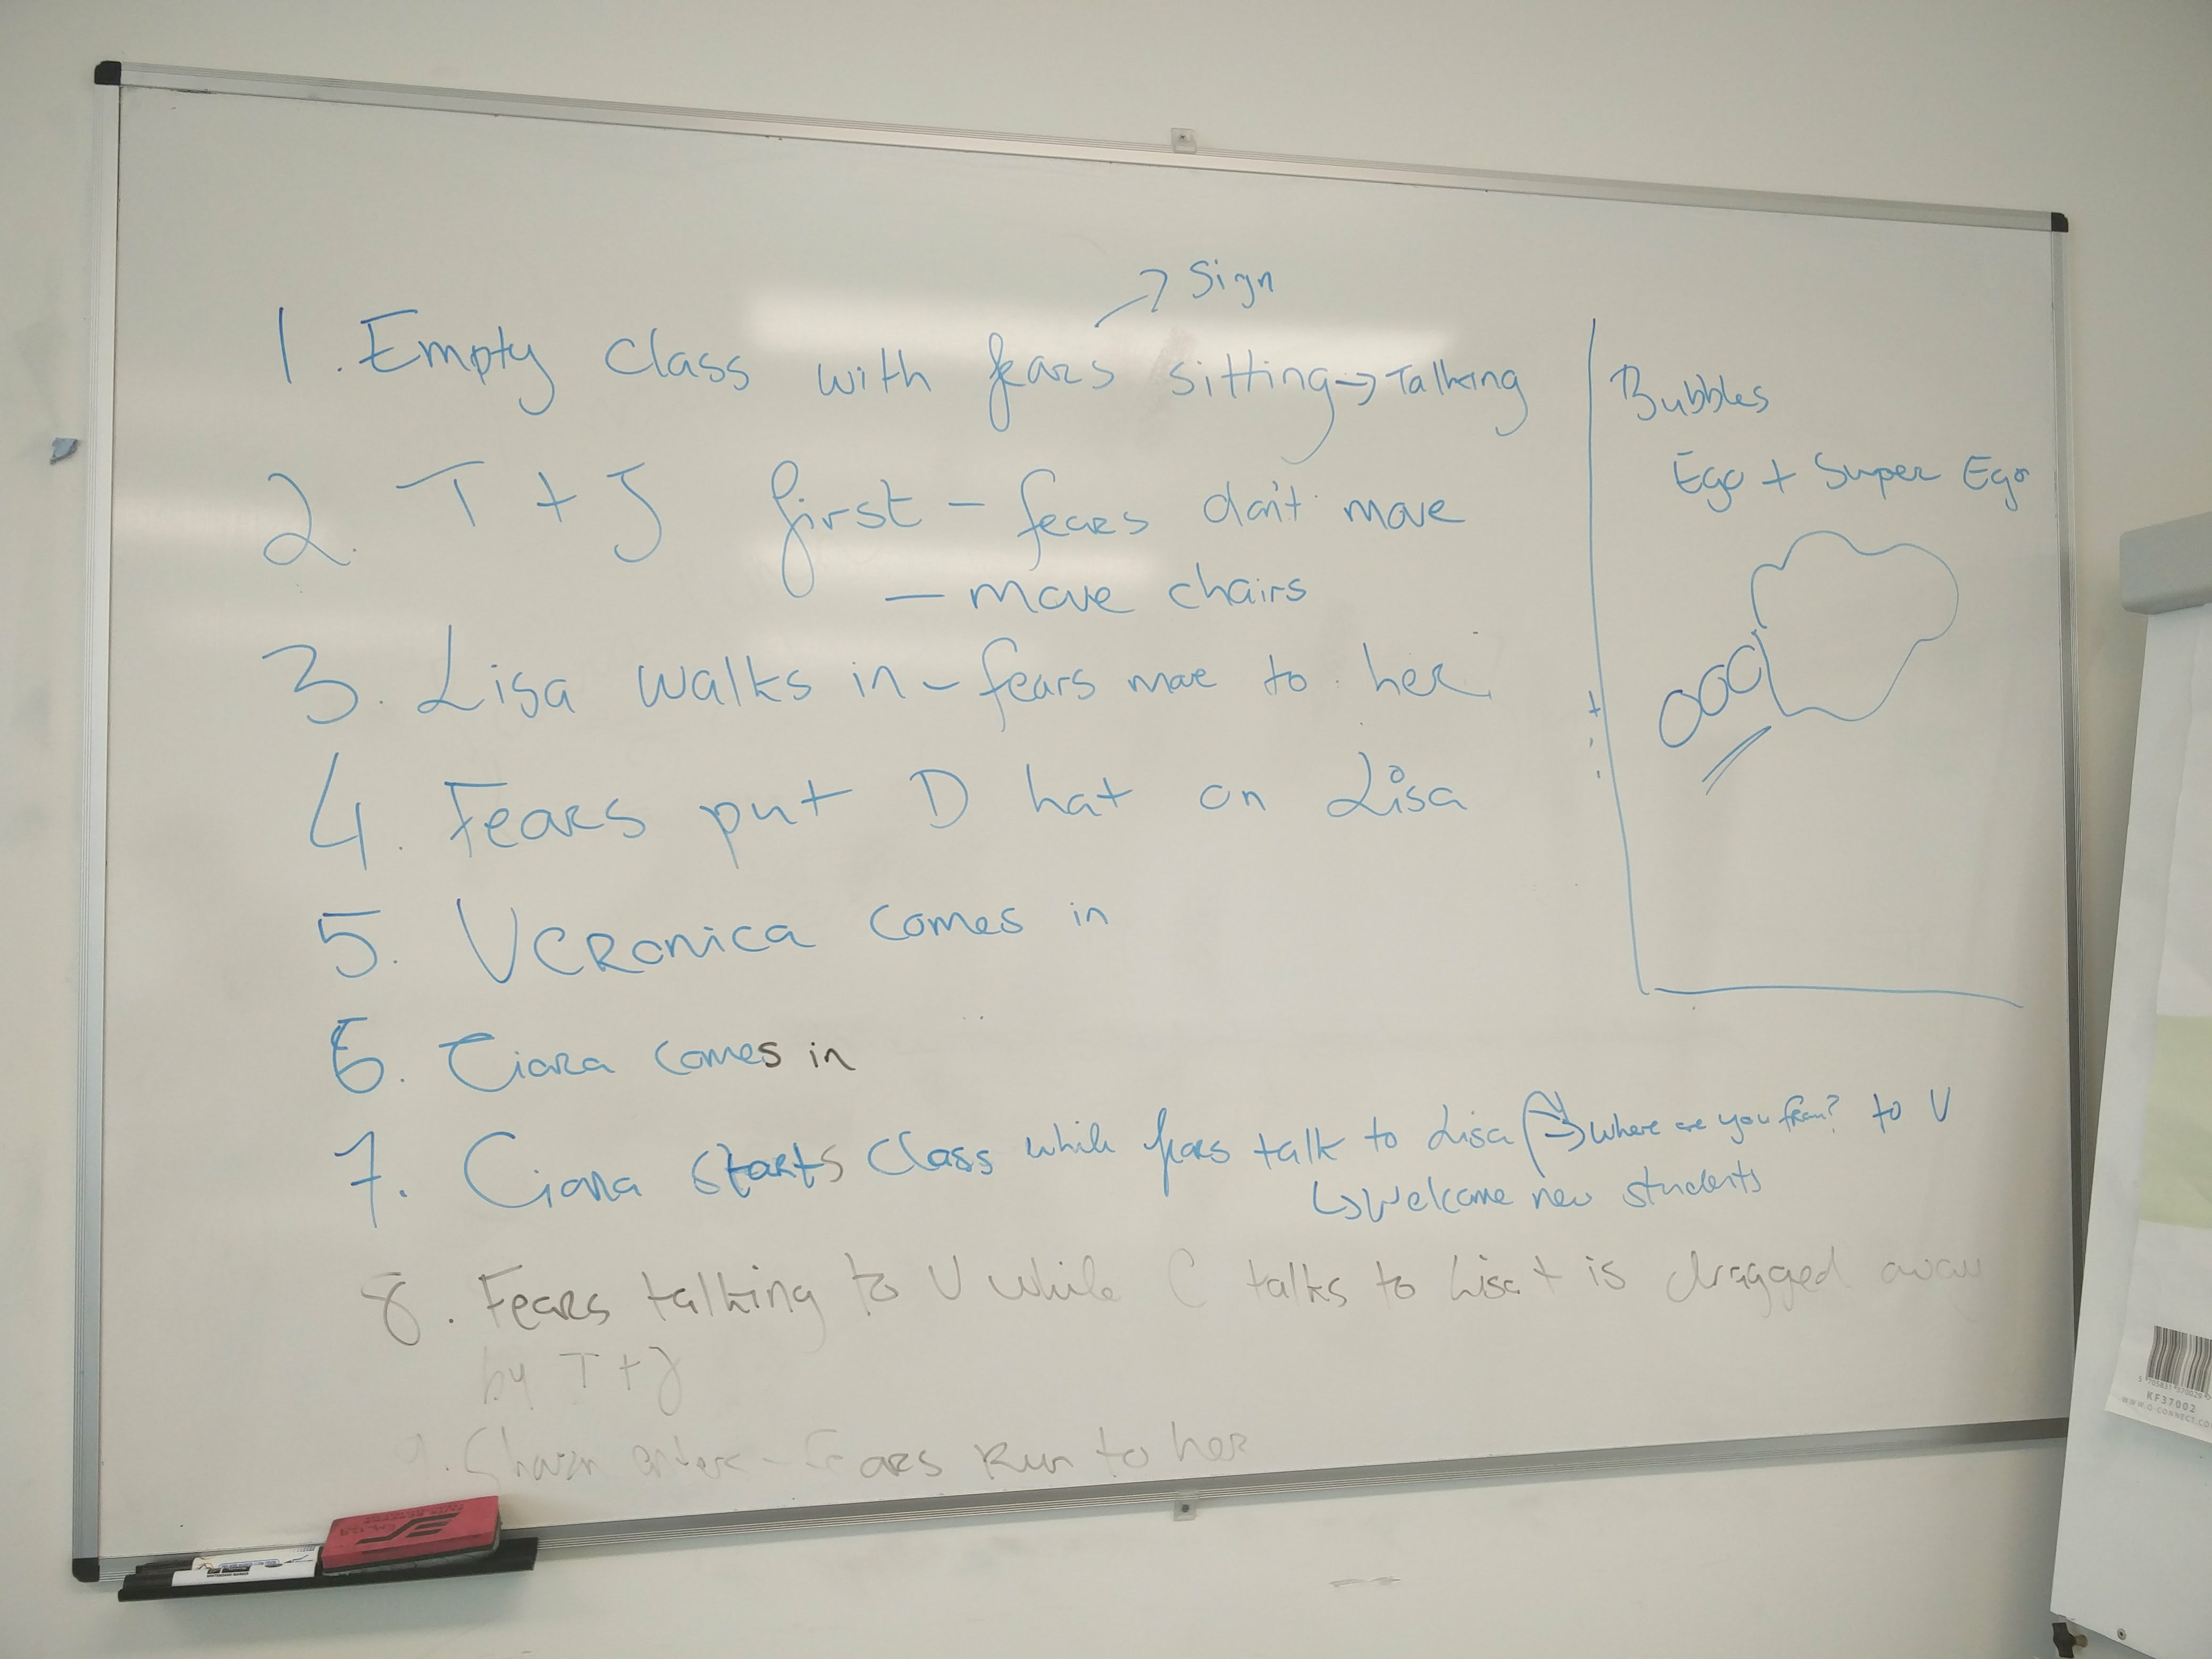 → Sign
1. Empty class with fears sitting → Talking
2. T + J first - fears don't move
- move chairs
3. Lisa walks in - fears move to her
4. Fears put D hat on Lisa
5. Veronica comes in
6. Ciara comes in
7. Ciara starts class while fears talk to Lisa → where are you from? to V
↳ Welcome new students
8. Fears talking to V while C talks to Lisa + is dragged away
by T + J
9. - Fears Run to her
Bubbles
Ego + Super Ego
KF37002